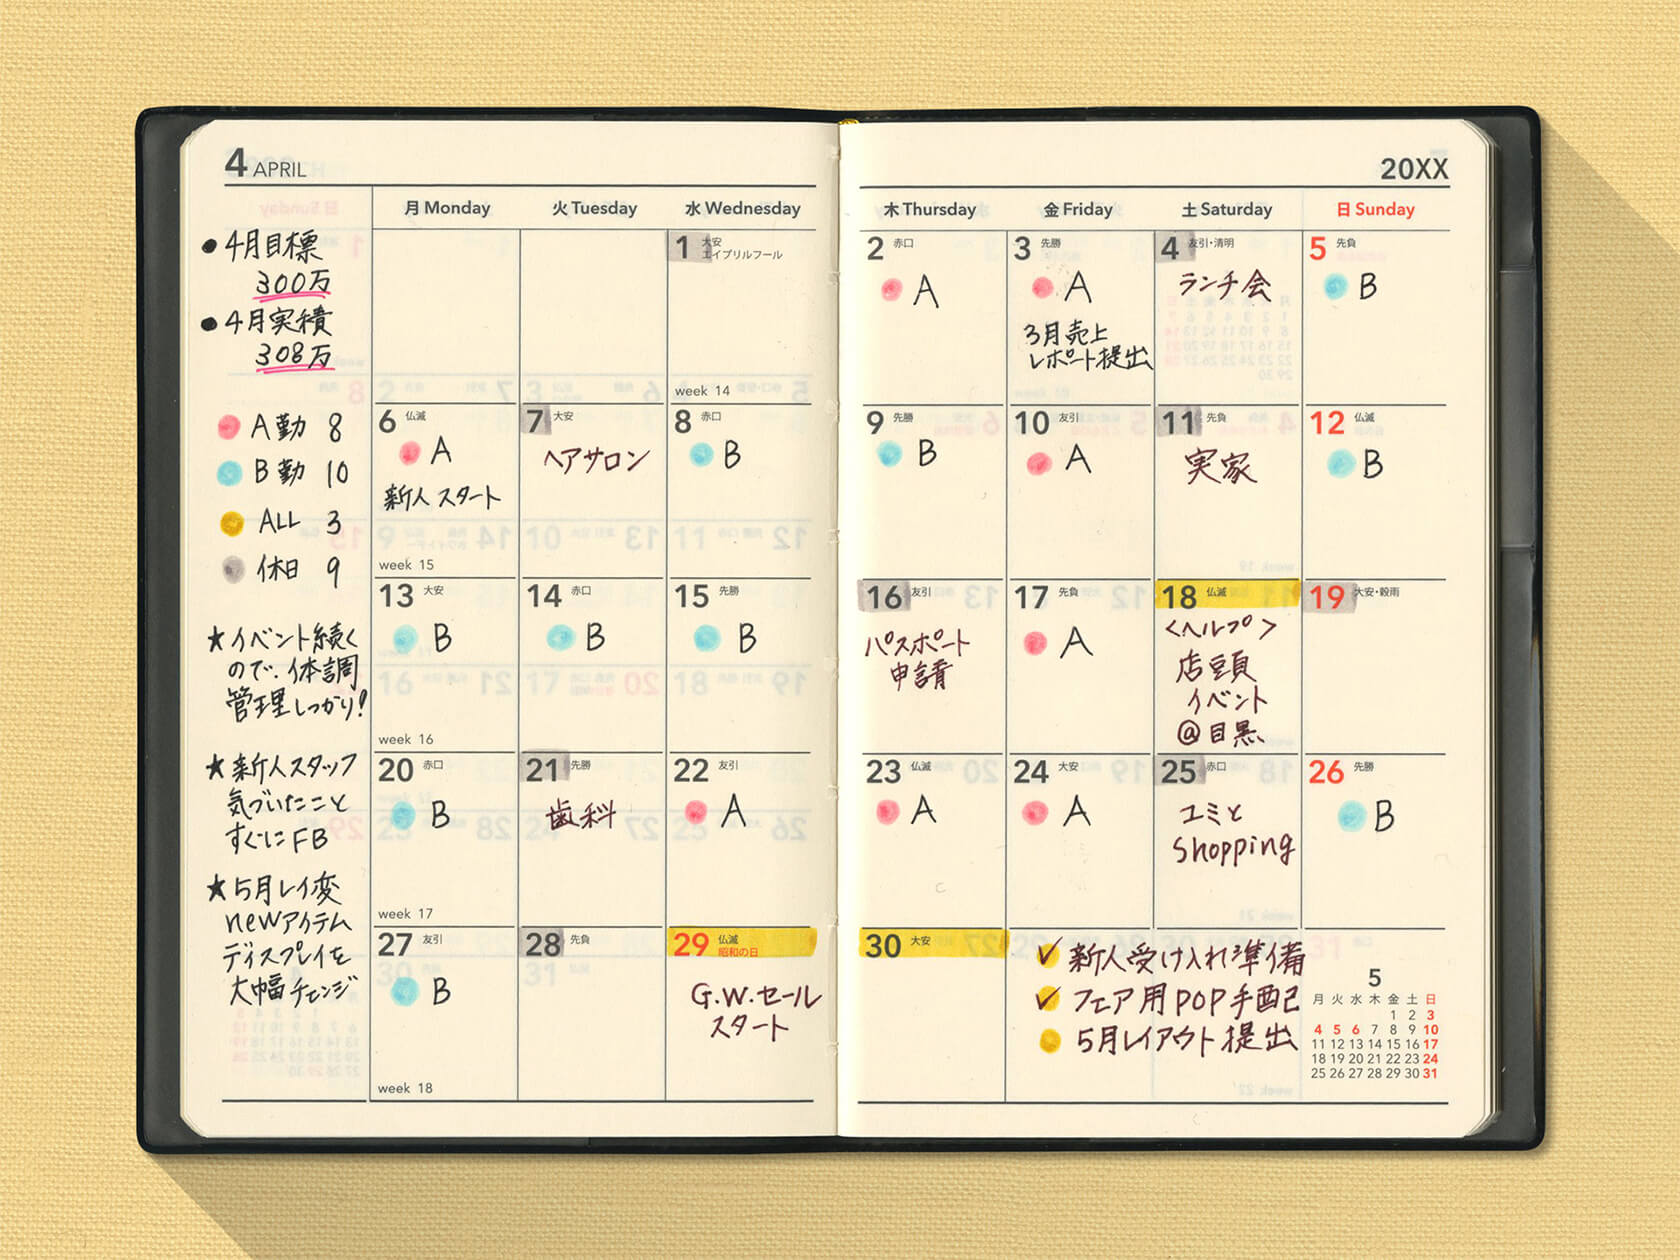 4 APRIL
20XX
月 Monday
火 Tuesday
水 Wednesday
木 Thursday
金 Friday
土 Saturday
日 Sunday
● 4月目標
300万
● 4月実積
308万
A勤 8
B勤 10
ALL 3
休日 9
★イベント続く
ので、体調
管理しっかり!
★新人スタッフ
気づいたこと
すぐにFB
★5月レイ変
newアイテム
ディスプレイを
大幅チェンジ
1 大安
エイプリルフール
week 14
2 赤口
A
3 先勝
A
3月売上
レポート提出
4 友引・清明
ランチ会
5 先負
B
6 仏滅
A
新人スタート
week 15
7 大安
ヘアサロン
8 赤口
B
9 先勝
B
10 友引
A
11 先負
実家
12 仏滅
B
13 大安
B
week 16
14 赤口
B
15 先勝
B
16 友引
パスポート
申請
17 先負
A
18 仏滅
<ヘルプ>
店頭
イベント
@目黒
19 大安・穀雨
20 赤口
B
week 17
21 先勝
歯科
22 友引
A
23 仏滅
A
24 大安
A
25 赤口
ユミと
shopping
26 先勝
B
27 友引
B
week 18
28 先負
29 仏滅
昭和の日
G.W.セール
スタート
30 大安
✓ 新人受け入れ準備
✓ フェア用POP手配
5月レイアウト提出
5
月 火 水 木 金 土 日
1 2 3
4 5 6 7 8 9 10
11 12 13 14 15 16 17
18 19 20 21 22 23 24
25 26 27 28 29 30 31